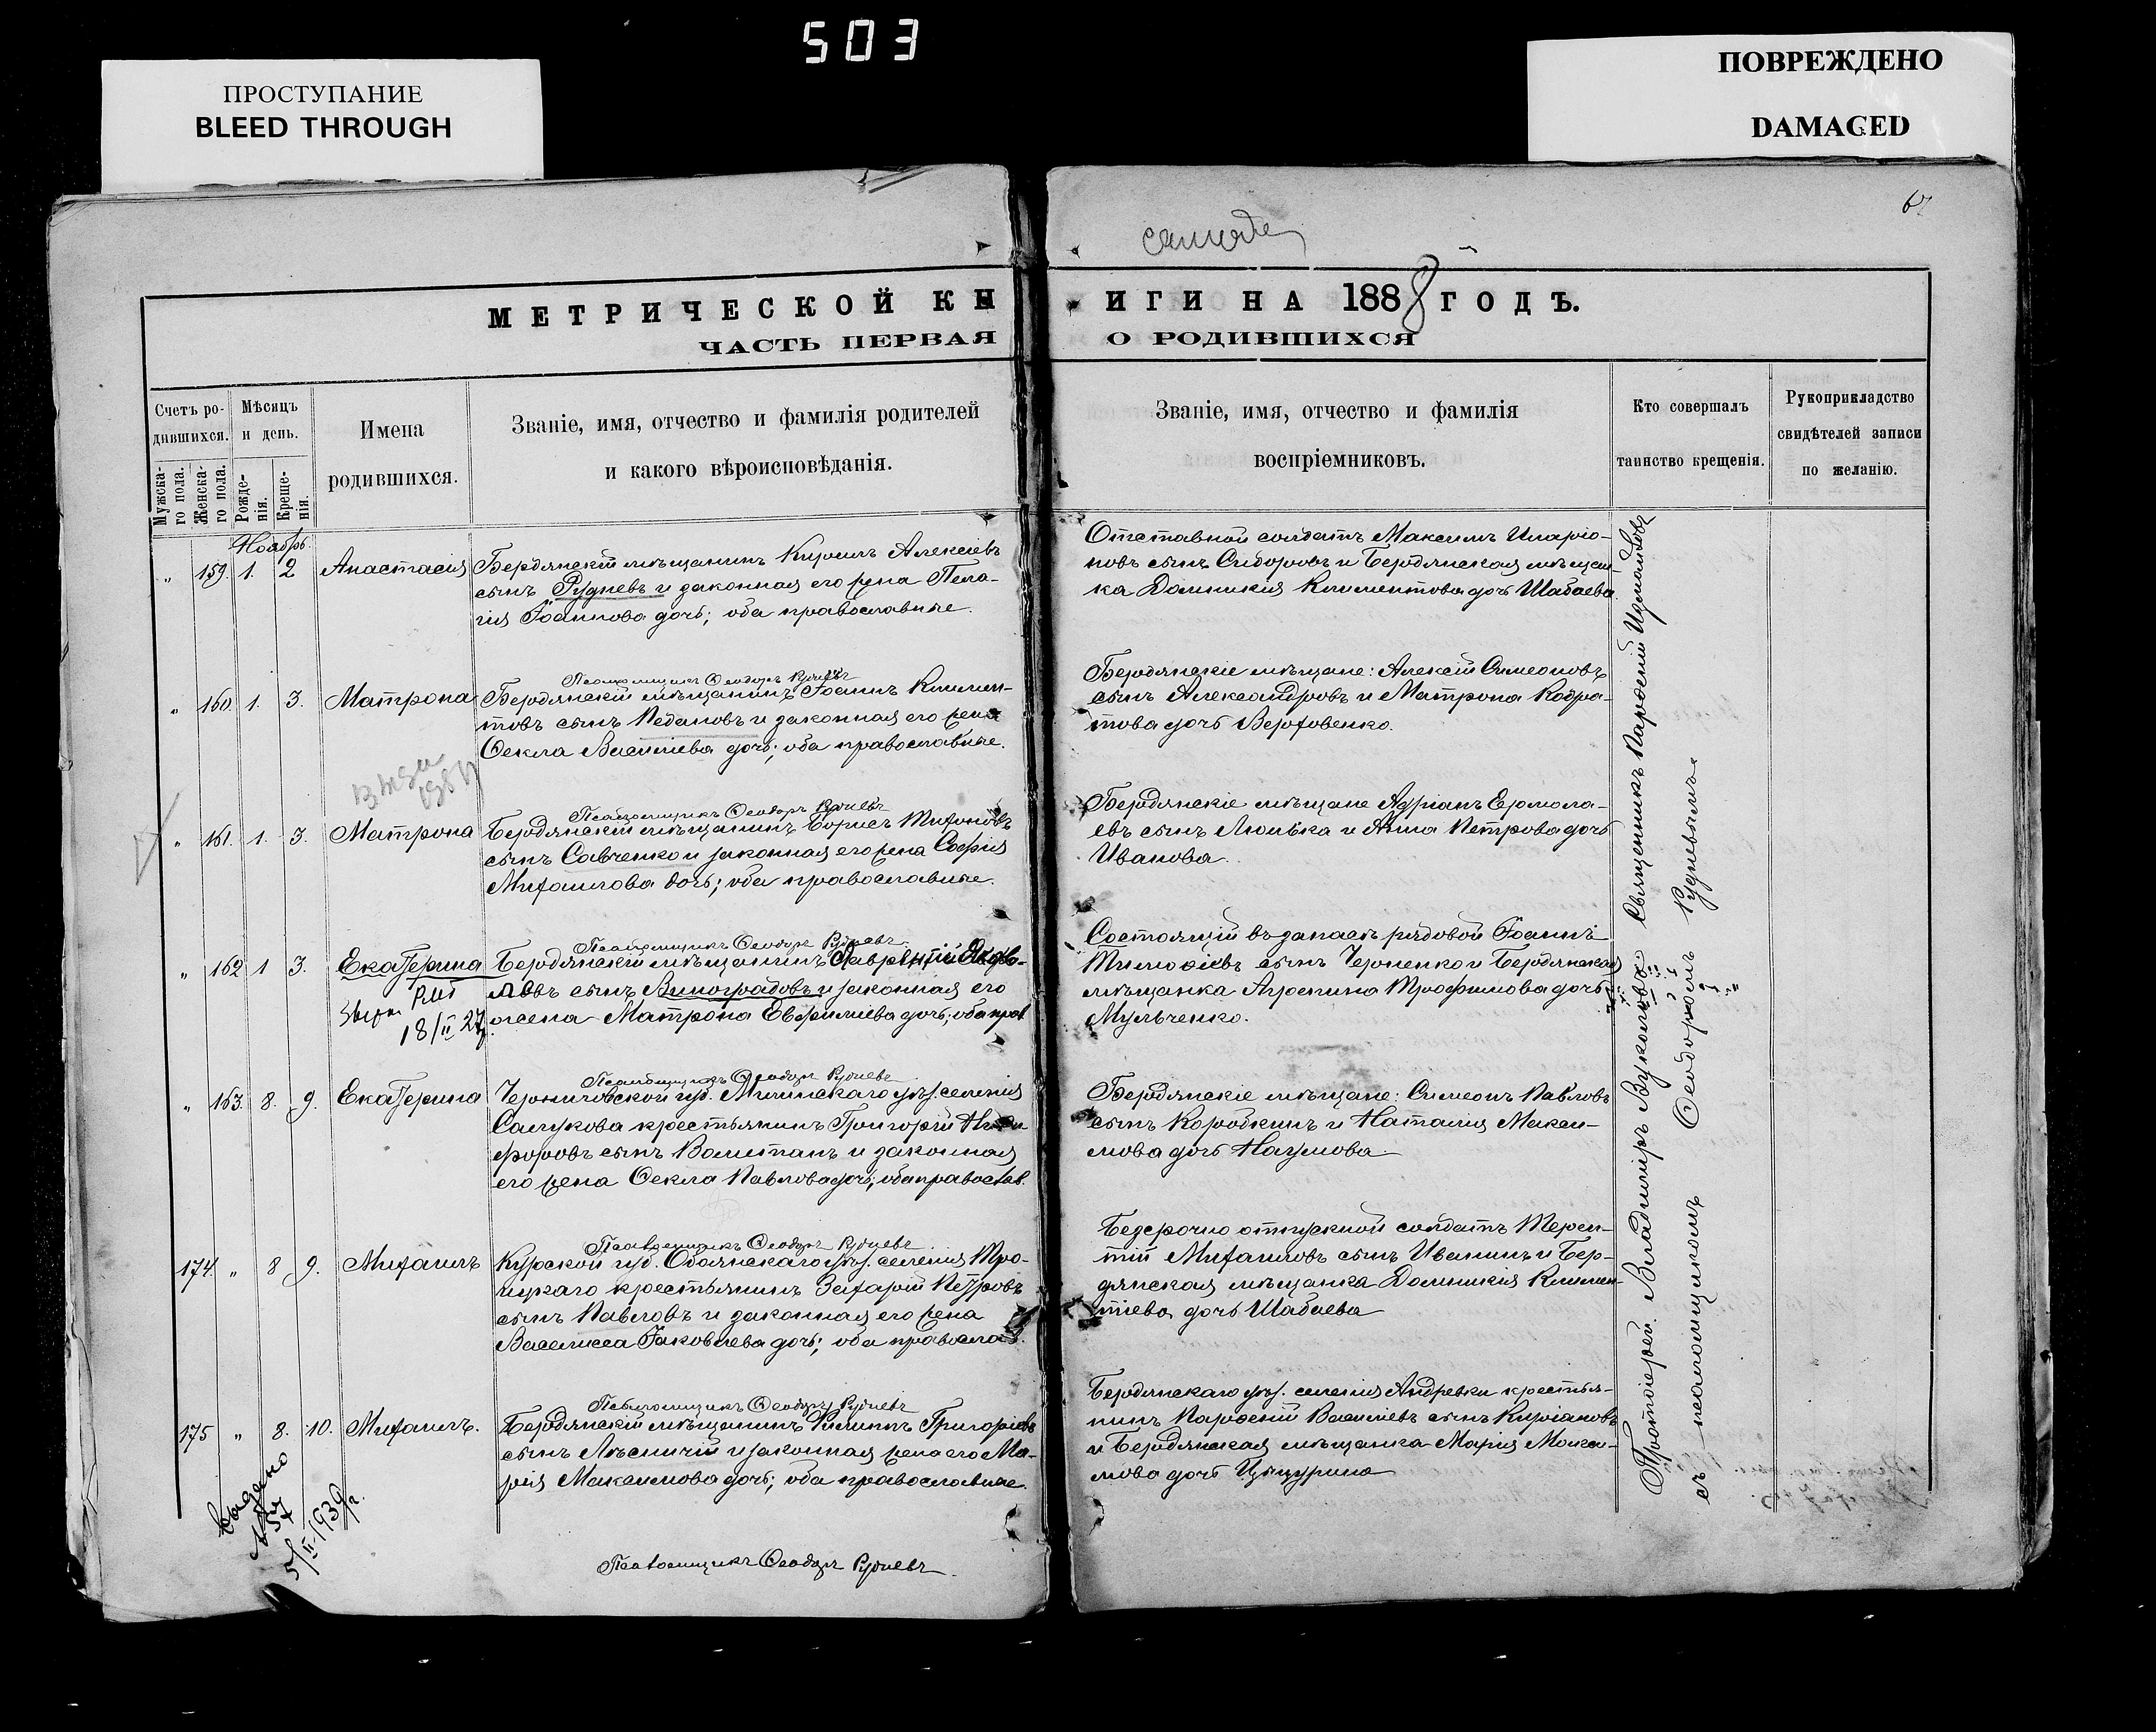 503
ПРОСТУПАНИЕ
BLEED THROUGH
ПОВРЕЖДЕНО
DAMAGED
МЕТРИЧЕСКОЙ КНИГИ НА 1888 ГОДЪ.
ЧАСТЬ ПЕРВАЯ О РОДИВШИХСЯ
Счетъ ро-
дившихся.
Мужска-
го пола.
Женска-
го пола.
Мѣсяцъ
и день.
Рожде-
нія.
Креще-
нія.
Имена
родившихся.
Званіе, имя, отчество и фамилія родителей
и какого вѣроисповѣданія.
Званіе, имя, отчество и фамилія
воспріемниковъ.
Кто совершалъ
таинство крещенія.
Рукоприкладство
свидѣтелей записи
по желанію.
Ноябрь.
„ 159. 1. 2 Анастасія
Бердянскій мѣщанинъ Кирилъ Алексіевъ
сынъ Рудневъ и законная его жена Пела-
гія Іоаннова дочь; оба православные.
Отставной солдатъ Максимъ Иларіо-
новъ сынъ Сидоровъ и Бердянская мѣщан-
ка Домникія Климентова дочь Шабаева
Псаломщикъ Ѳеодоръ Рудневъ
„ 160. 1. 3. Матрона
Бердянскій мѣщанинъ Іоаннъ Климен-
товъ сынъ Педановъ и законная его жена
Ѳекла Василіева дочь; оба православные.
Бердянскіе мѣщане: Алексій Симеоновъ
сынъ Александровъ и Матрона Кодра-
това дочь Верховенко.
Псаломщикъ Ѳеодоръ Рудневъ
„ 161. 1. 3. Матрона
Бердянскій мѣщанинъ Борисъ Тихоновъ
сынъ Савченко и законная его жена Софія
Михаилова дочь; оба православные.
Бердянскіе мѣщане Адріанъ Ермола-
евъ сынъ Люлька и Анна Петрова дочь
Иванова.
Псаломщикъ Ѳеодоръ Рудневъ
„ 162 1 3. Екатерина
18/II 27
Бердянскій мѣщанинъ Лаврентій Яковл-
евъ сынъ Виноградовъ и законная его
жена Матрона Евфиміева дочь; оба прав
Состоящій въ запасѣ рядовой Іоаннъ
Тимоѳіевъ сынъ Черненко и Бердянская
мѣщанка Агрепина Трофимова дочь
Мульченко.
Псаломщикъ Ѳеодоръ Рудневъ
„ 163. 8. 9. Екатерина
Черниговской губ. Мглинскаго уѣз. селенія
крестьянинъ Григорій Ники-
форовъ сынъ и законная
его жена Ѳекла Павлова дочь; оба православ.
Бердянскіе мѣщане: Симеонъ Павловъ
сынъ Коробкинъ и Наталія Макси-
мова дочь Наумова.
Псаломщикъ Ѳеодоръ Рудневъ
174. „ 8 9. Михаилъ
Курской губ. Обоянскаго уѣз. селенія Тро-
ицкаго крестьянинъ Захарій Петровъ
сынъ Павловъ и законная его жена
Василиса Іаковлева дочь; оба православ.
Безсрочно отпускной солдатъ Терен-
тій Михаиловъ сынъ Иванинъ и Бер-
дянская мѣщанка Домникія Климен-
тіева дочь Шабаева
Псаломщикъ Ѳеодоръ Рудневъ
175 „ 8. 10. Михаилъ.
Бердянскій мѣщанинъ Филипъ Григоріевъ
сынъ Лѣсничій и законная жена его Ма-
рія Максимова дочь; оба православные.
Бердянскаго уѣз. селенія Андревки крестья-
нинъ Парѳеній Василіевъ сынъ Кипріановъ
и Бердянская мѣщанка Марія Макси-
мова дочь Цыцурина
Псаломщикъ Ѳеодоръ Рудневъ
Выдано
№ 57
5/II-1939 г.
Протоіерей Владиміръ Вуколовъ Священникъ Парѳеній Измайловъ
съ псаломщикомъ Ѳеодоромъ Рудневымъ